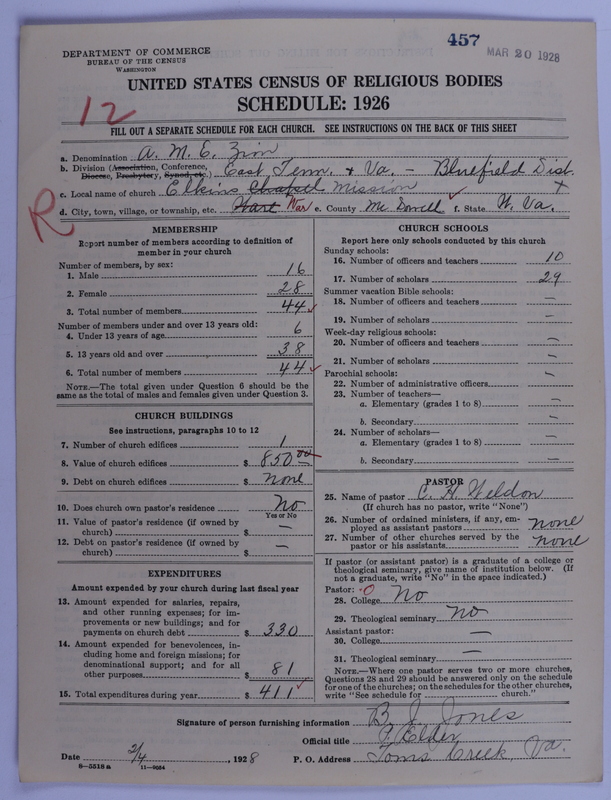 457
MAR 20 1928
DEPARTMENT OF COMMERCE
BUREAU OF THE CENSUS
WASHINGTON
UNITED STATES CENSUS OF RELIGIOUS BODIES
SCHEDULE: 1926
12
FILL OUT A SEPARATE SCHEDULE FOR EACH CHURCH. SEE INSTRUCTIONS ON THE BACK OF THIS SHEET
R
a. Denomination A. M. E. Zion
b. Division (Association, Conference, Diocese, Presbytery, Synod, etc.) East Tenn. & Va. – Bluefield Dist.
c. Local name of church Elkins Chapel Mission x
d. City, town, village, or township, etc. Wart War e. County Mc Dowell ✓ f. State W. Va.
MEMBERSHIP
Report number of members according to definition of
member in your church
Number of members, by sex:
1. Male 16
2. Female 28
3. Total number of members 44 ✓
Number of members under and over 13 years old:
4. Under 13 years of age 6
5. 13 years old and over 38
6. Total number of members 44 ✓
NOTE.—The total given under Question 6 should be
same as the total of males and females given under Question 3.
CHURCH BUILDINGS
See instructions, paragraphs 10 to 12
7. Number of church edifices 1
8. Value of church edifices $ 850 00
9. Debt on church edifices $ none
10. Does church own pastor's residence No
Yes or No
11. Value of pastor's residence (if owned by
church) $ —
12. Debt on pastor's residence (if owned by
church) $ —
EXPENDITURES
Amount expended by your church during last fiscal year
13. Amount expended for salaries, repairs,
and other running expenses; for im-
provements or new buildings; and for
payments on church debt $ 330
14. Amount expended for benevolences, in-
cluding home and foreign missions; for
denominational support; and for all
other purposes $ 81
15. Total expenditures during year $ 411 ✓
CHURCH SCHOOLS
Report here only schools conducted by this church
Sunday schools:
16. Number of officers and teachers 10
17. Number of scholars 29
Summer vacation Bible schools:
18. Number of officers and teachers —
19. Number of scholars —
Week-day religious schools:
20. Number of officers and teachers —
21. Number of scholars —
Parochial schools:
22. Number of administrative officers —
23. Number of teachers—
a. Elementary (grades 1 to 8) —
b. Secondary —
24. Number of scholars—
a. Elementary (grades 1 to 8) —
b. Secondary —
PASTOR
25. Name of pastor C. H. Weldon
(If church has no pastor, write "None")
26. Number of ordained ministers, if any, em-
ployed as assistant pastors none
27. Number of other churches served by the
pastor or his assistants none
If pastor (or assistant pastor) is a graduate of a college or
theological seminary, give name of institution below. (If
not a graduate, write "No" in the space indicated.)
Pastor: O
28. College No
29. Theological seminary No
Assistant pastor:
30. College —
31. Theological seminary —
NOTE.—Where one pastor serves two or more churches,
Questions 28 and 29 should be answered only on the schedule
for one of the churches; on the schedules for the other churches,
write "See schedule for church."
Signature of person furnishing information B. J. Jones
Official title P. Elder
Date 2/4, 1928 P. O. Address Toms Creek, Va.
8—5518a 11—9624